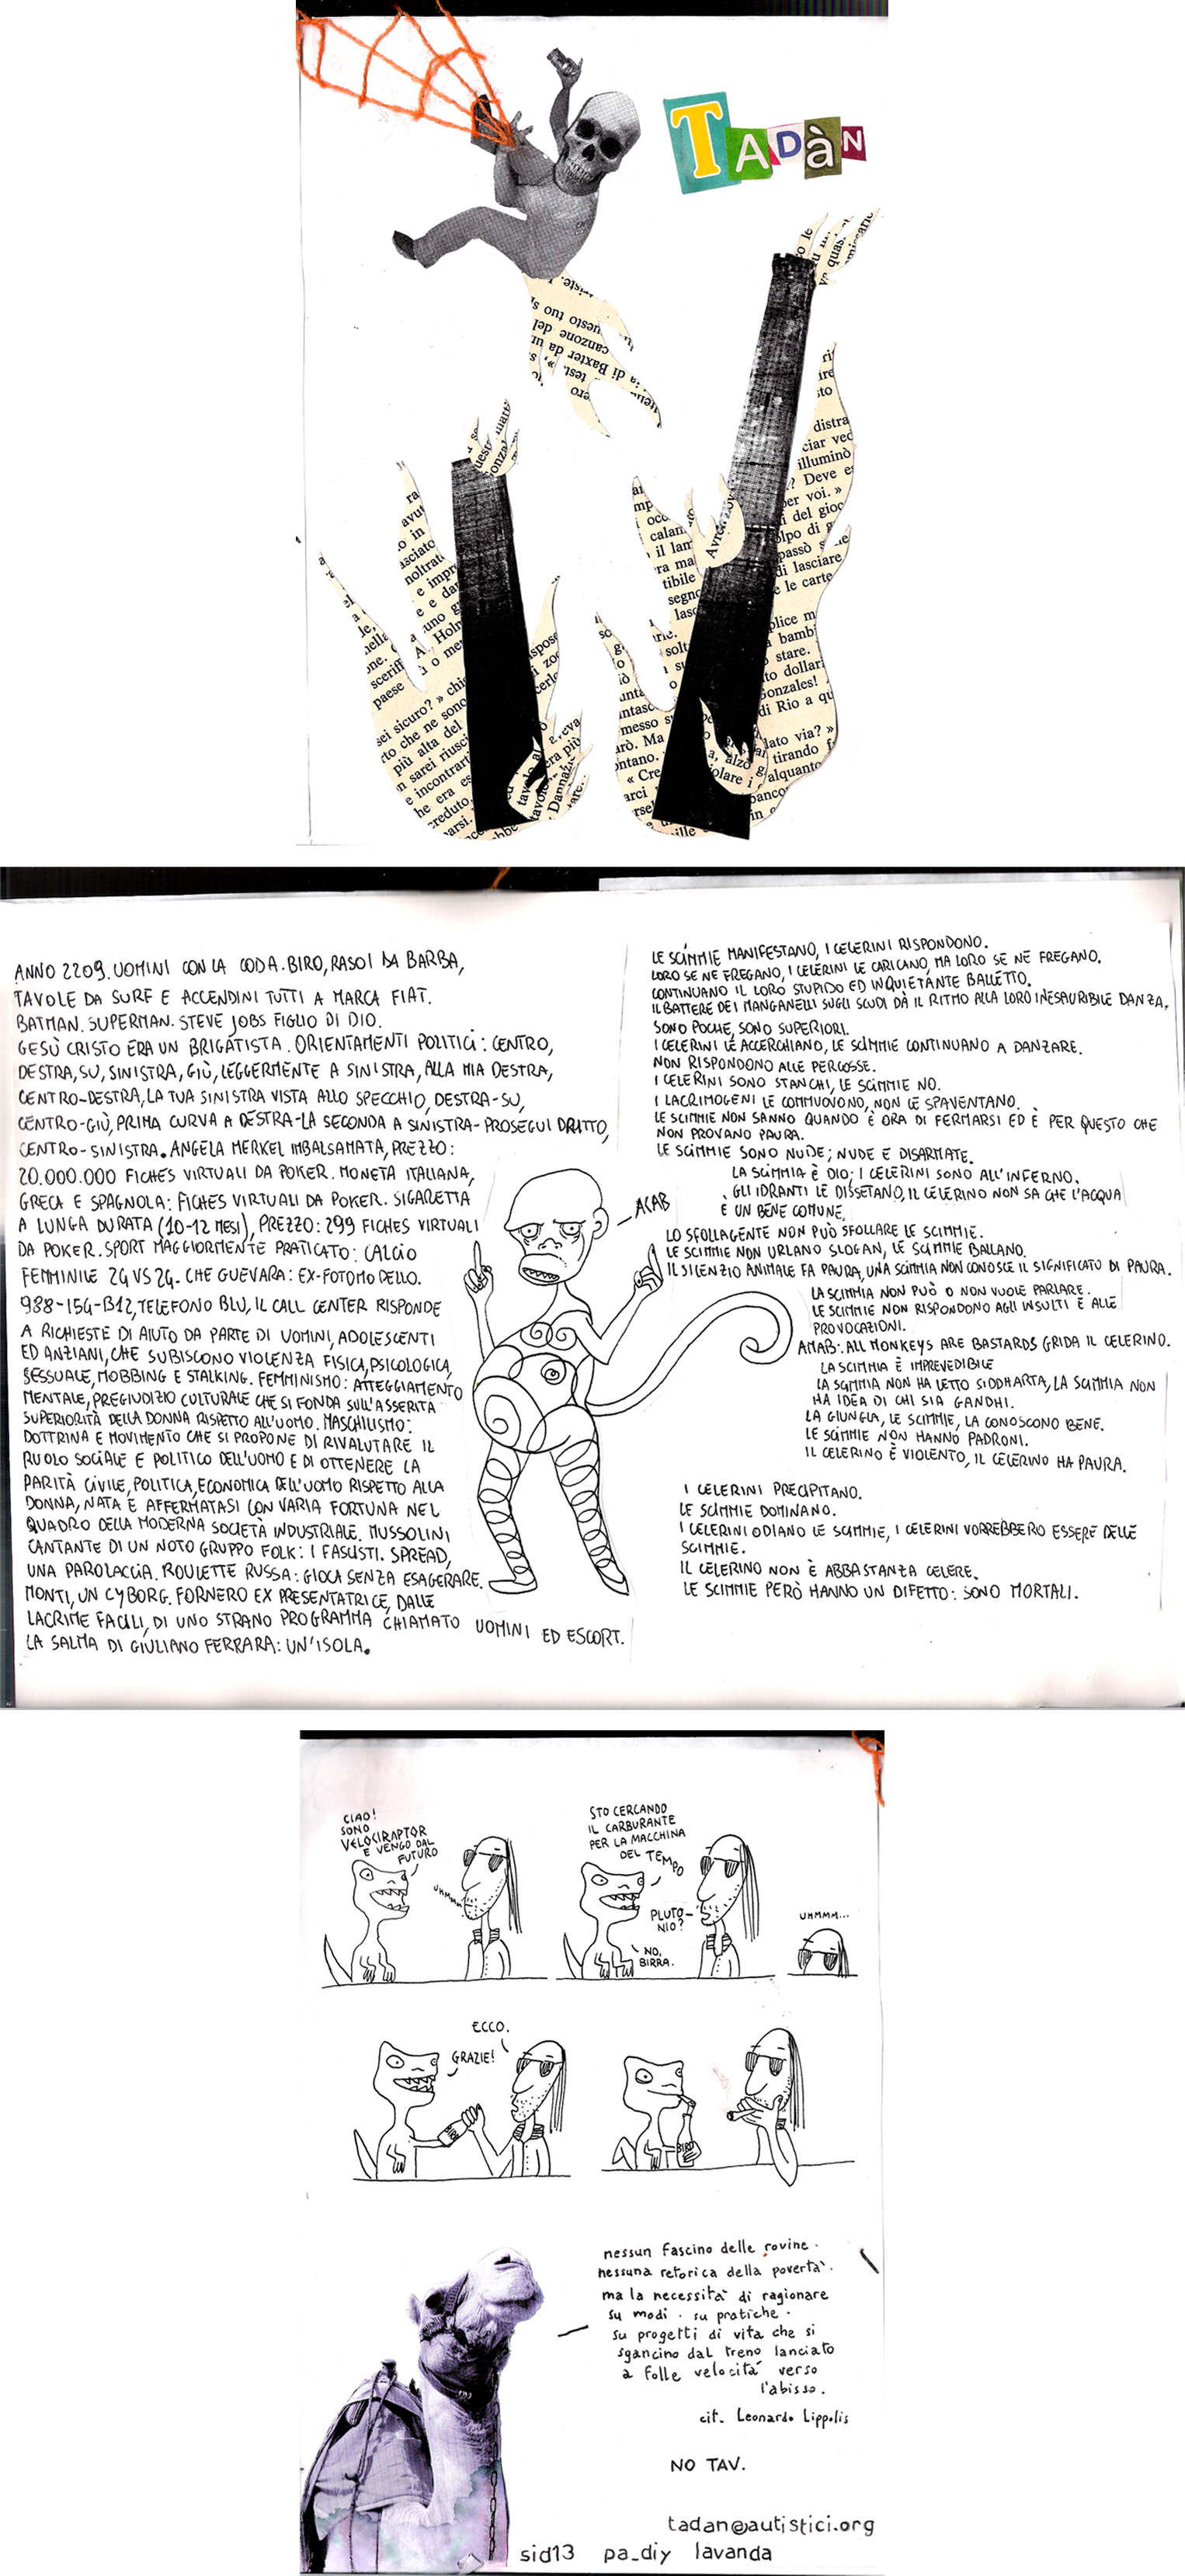 TADàN
ANNO 2209. UOMINI CON LA CODA. BIRO, RASOI DA BARBA,
TAVOLE DA SURF E ACCENDINI TUTTI A MARCA FIAT.
BATMAN. SUPERMAN. STEVE JOBS FIGLIO DI DIO.
GESÙ CRISTO ERA UN BRIGATISTA. ORIENTAMENTI POLITICI: CENTRO,
DESTRA, SU, SINISTRA, GIÙ, LEGGERMENTE A SINISTRA, ALLA MIA DESTRA,
CENTRO-DESTRA, LA TUA SINISTRA VISTA ALLO SPECCHIO, DESTRA-SU,
CENTRO-GIÙ, PRIMA CURVA A DESTRA-LA SECONDA A SINISTRA-PROSEGUI DRITTO,
CENTRO-SINISTRA. ANGELA MERKEL IMBALSAMATA, PREZZO:
20.000.000 FICHES VIRTUALI DA POKER. MONETA ITALIANA,
GRECA E SPAGNOLA: FICHES VIRTUALI DA POKER. SIGARETTA
A LUNGA DURATA (10-12 MESI), PREZZO: 299 FICHES VIRTUALI
DA POKER. SPORT MAGGIORMENTE PRATICATO: CALCIO
FEMMINILE 24 VS 24. CHE GUEVARA: EX-FOTOMODELLO.
988-154-B12, TELEFONO BLU, IL CALL CENTER RISPONDE
A RICHIESTE DI AIUTO DA PARTE DI UOMINI, ADOLESCENTI
ED ANZIANI, CHE SUBISCONO VIOLENZA FISICA, PSICOLOGICA,
SESSUALE, MOBBING E STALKING. FEMMINISMO: ATTEGGIAMENTO
MENTALE, PREGIUDIZIO CULTURALE CHE SI FONDA SULL'ASSERITA
SUPERIORITÀ DELLA DONNA RISPETTO ALL'UOMO. MASCHILISMO:
DOTTRINA E MOVIMENTO CHE SI PROPONE DI RIVALUTARE IL
RUOLO SOCIALE E POLITICO DELL'UOMO E DI OTTENERE LA
PARITÀ CIVILE, POLITICA, ECONOMICA DELL'UOMO RISPETTO ALLA
DONNA, NATA E AFFERMATASI CON VARIA FORTUNA NEL
QUADRO DELLA MODERNA SOCIETÀ INDUSTRIALE. MUSSOLINI
CANTANTE DI UN NOTO GRUPPO FOLK: I FASCISTI. SPREAD,
UNA PAROLACCIA. ROULETTE RUSSA: GIOCA SENZA ESAGERARE.
MONTI, UN CYBORG. FORNERO EX PRESENTATRICE, DALLE
LACRIME FACILI, DI UNO STRANO PROGRAMMA CHIAMATO UOMINI ED ESCORT.
LA SALMA DI GIULIANO FERRARA: UN'ISOLA.
ACAB
LE SCIMMIE MANIFESTANO, I CELERINI RISPONDONO.
LORO SE NE FREGANO, I CELERINI LE CARICANO, MA LORO SE NE FREGANO.
CONTINUANO IL LORO STUPIDO ED INQUIETANTE BALLETTO.
IL BATTERE DEI MANGANELLI SUGLI SCUDI DÀ IL RITMO ALLA LORO INESAURIBILE DANZA.
SONO POCHE, SONO SUPERIORI.
I CELERINI LE ACCERCHIANO, LE SCIMMIE CONTINUANO A DANZARE.
NON RISPONDONO ALLE PERCOSSE.
I CELERINI SONO STANCHI, LE SCIMMIE NO.
I LACRIMOGENI LE COMMUOVONO, NON LE SPAVENTANO.
LE SCIMMIE NON SANNO QUANDO È ORA DI FERMARSI ED È PER QUESTO CHE
NON PROVANO PAURA.
LE SCIMMIE SONO NUDE; NUDE E DISARMATE.
LA SCIMMIA È DIO; I CELERINI SONO ALL'INFERNO.
GLI IDRANTI LE DISSETANO, IL CELERINO NON SA CHE L'ACQUA
È UN BENE COMUNE.
LO SFOLLAGENTE NON PUÒ SFOLLARE LE SCIMMIE.
LE SCIMMIE NON URLANO SLOGAN, LE SCIMMIE BALLANO.
IL SILENZIO ANIMALE FA PAURA, UNA SCIMMIA NON CONOSCE IL SIGNIFICATO DI PAURA.
LA SCIMMIA NON PUÒ O NON VUOLE PARLARE.
LE SCIMMIE NON RISPONDONO AGLI INSULTI E ALLE
PROVOCAZIONI.
AMAB: ALL MONKEYS ARE BASTARDS GRIDA IL CELERINO.
LA SCIMMIA È IMPREVEDIBILE
LA SCIMMIA NON HA LETTO SIDDHARTA, LA SCIMMIA NON
HA IDEA DI CHI SIA GANDHI.
LA GIUNGLA, LE SCIMMIE, LA CONOSCONO BENE.
LE SCIMMIE NON HANNO PADRONI.
IL CELERINO È VIOLENTO, IL CELERINO HA PAURA.
I CELERINI PRECIPITANO.
LE SCIMMIE DOMINANO.
I CELERINI ODIANO LE SCIMMIE, I CELERINI VORREBBERO ESSERE DELLE
SCIMMIE.
IL CELERINO NON È ABBASTANZA CELERE.
LE SCIMMIE PERÒ HANNO UN DIFETTO: SONO MORTALI.
CIAO!
SONO
VELOCIRAPTOR
E VENGO DAL
FUTURO
UHMMM
STO CERCANDO
IL CARBURANTE
PER LA MACCHINA
DEL TEMPO
PLUTO-
NIO?
NO,
BIRRA.
UHMMM...
ECCO.
GRAZIE!
nessun fascino delle rovine.
nessuna retorica della povertà.
ma la necessità di ragionare
su modi. su pratiche.
su progetti di vita che si
sgancino dal treno lanciato
a folle velocità verso
l'abisso.
cit. Leonardo Lippolis
NO TAV.
tadan@autistici.org
sid13 pa_diy lavanda